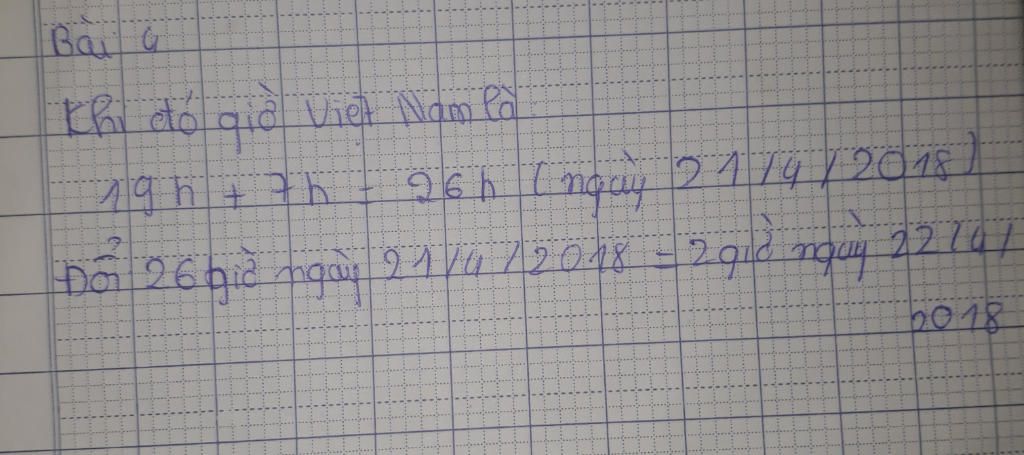 Bài 4
Khi đó giờ Việt Nam là
19h + 7h = 26h (ngày 21/4/2018)
Đổi 26 giờ ngày 21/4/2018 = 2 giờ ngày 22/4/
2018